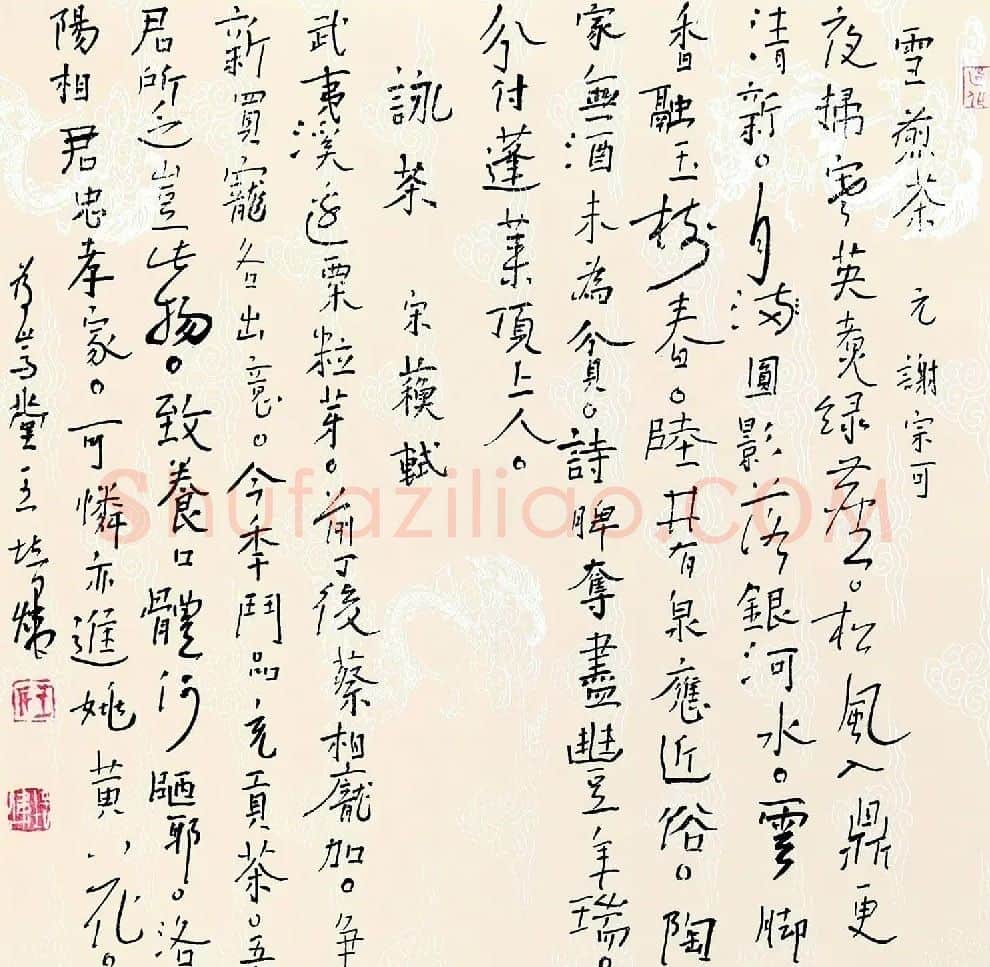 雪煎茶 元 謝宗可
夜掃寒英煑绿塵。松風入鼎更
清新。月满圓影落銀河水。雲脚
香融玉樹春。陸井有泉應近俗。陶
家無酒未為貧。詩脾奪盡豐年瑞。
分付蓬莱頂上人。
詠茶 宋 蘓軾
武夷溪邊粟粒芽。前丁後蔡相寵加。争
新買寵各出意。今年鬥品充貢茶。吾
君所乏豈此物。致養口體何陋耶。洛
陽相君忠孝家。可憐亦進姚黄花。
王培
Shufaziliao.COM